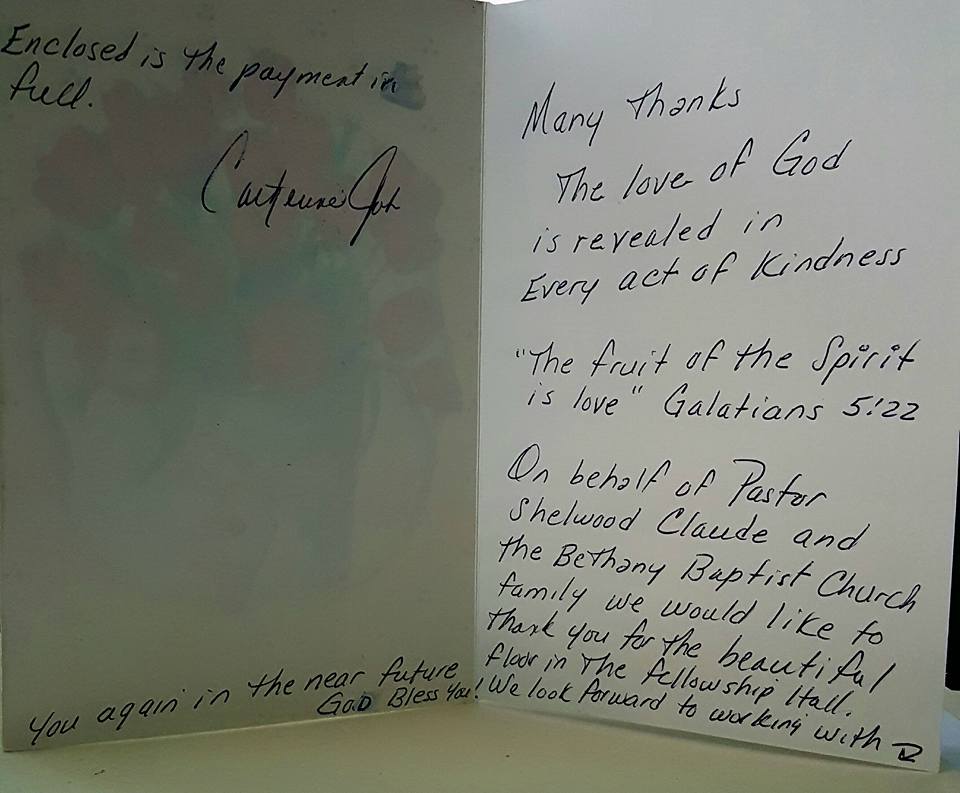 Enclosed is the payment in
full.
Many thanks
The love of God
is revealed in
Every act of Kindness
"The fruit of the Spirit
is love" Galatians 5:22
On behalf of Pastor
Shelwood Claude and
the Bethany Baptist Church
family we would like to
thank you for the beautiful
floor in The fellowship Hall.
We look forward to working with
you again in the near future
God Bless You!